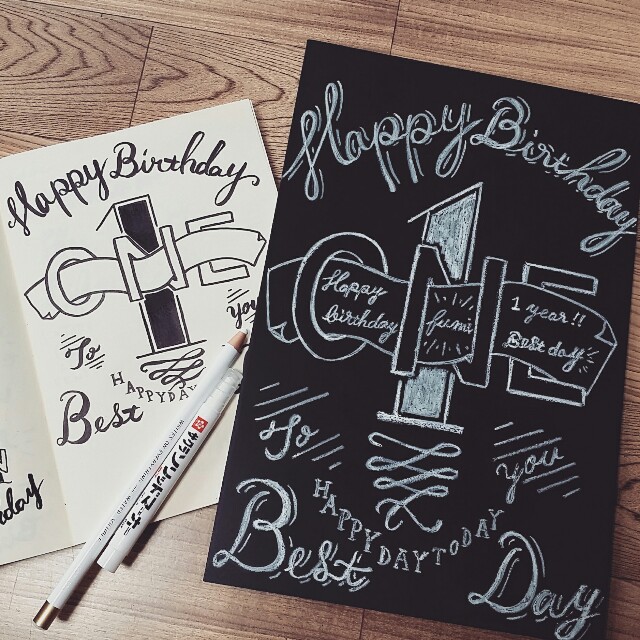 Happy Birthday
To
you
HAPPY DAY
Best
Happy Birthday
ONE
1
Happy
birthday
fumi
1 year!!
Best day
To
you
HAPPY DAY TODAY
Best
Day